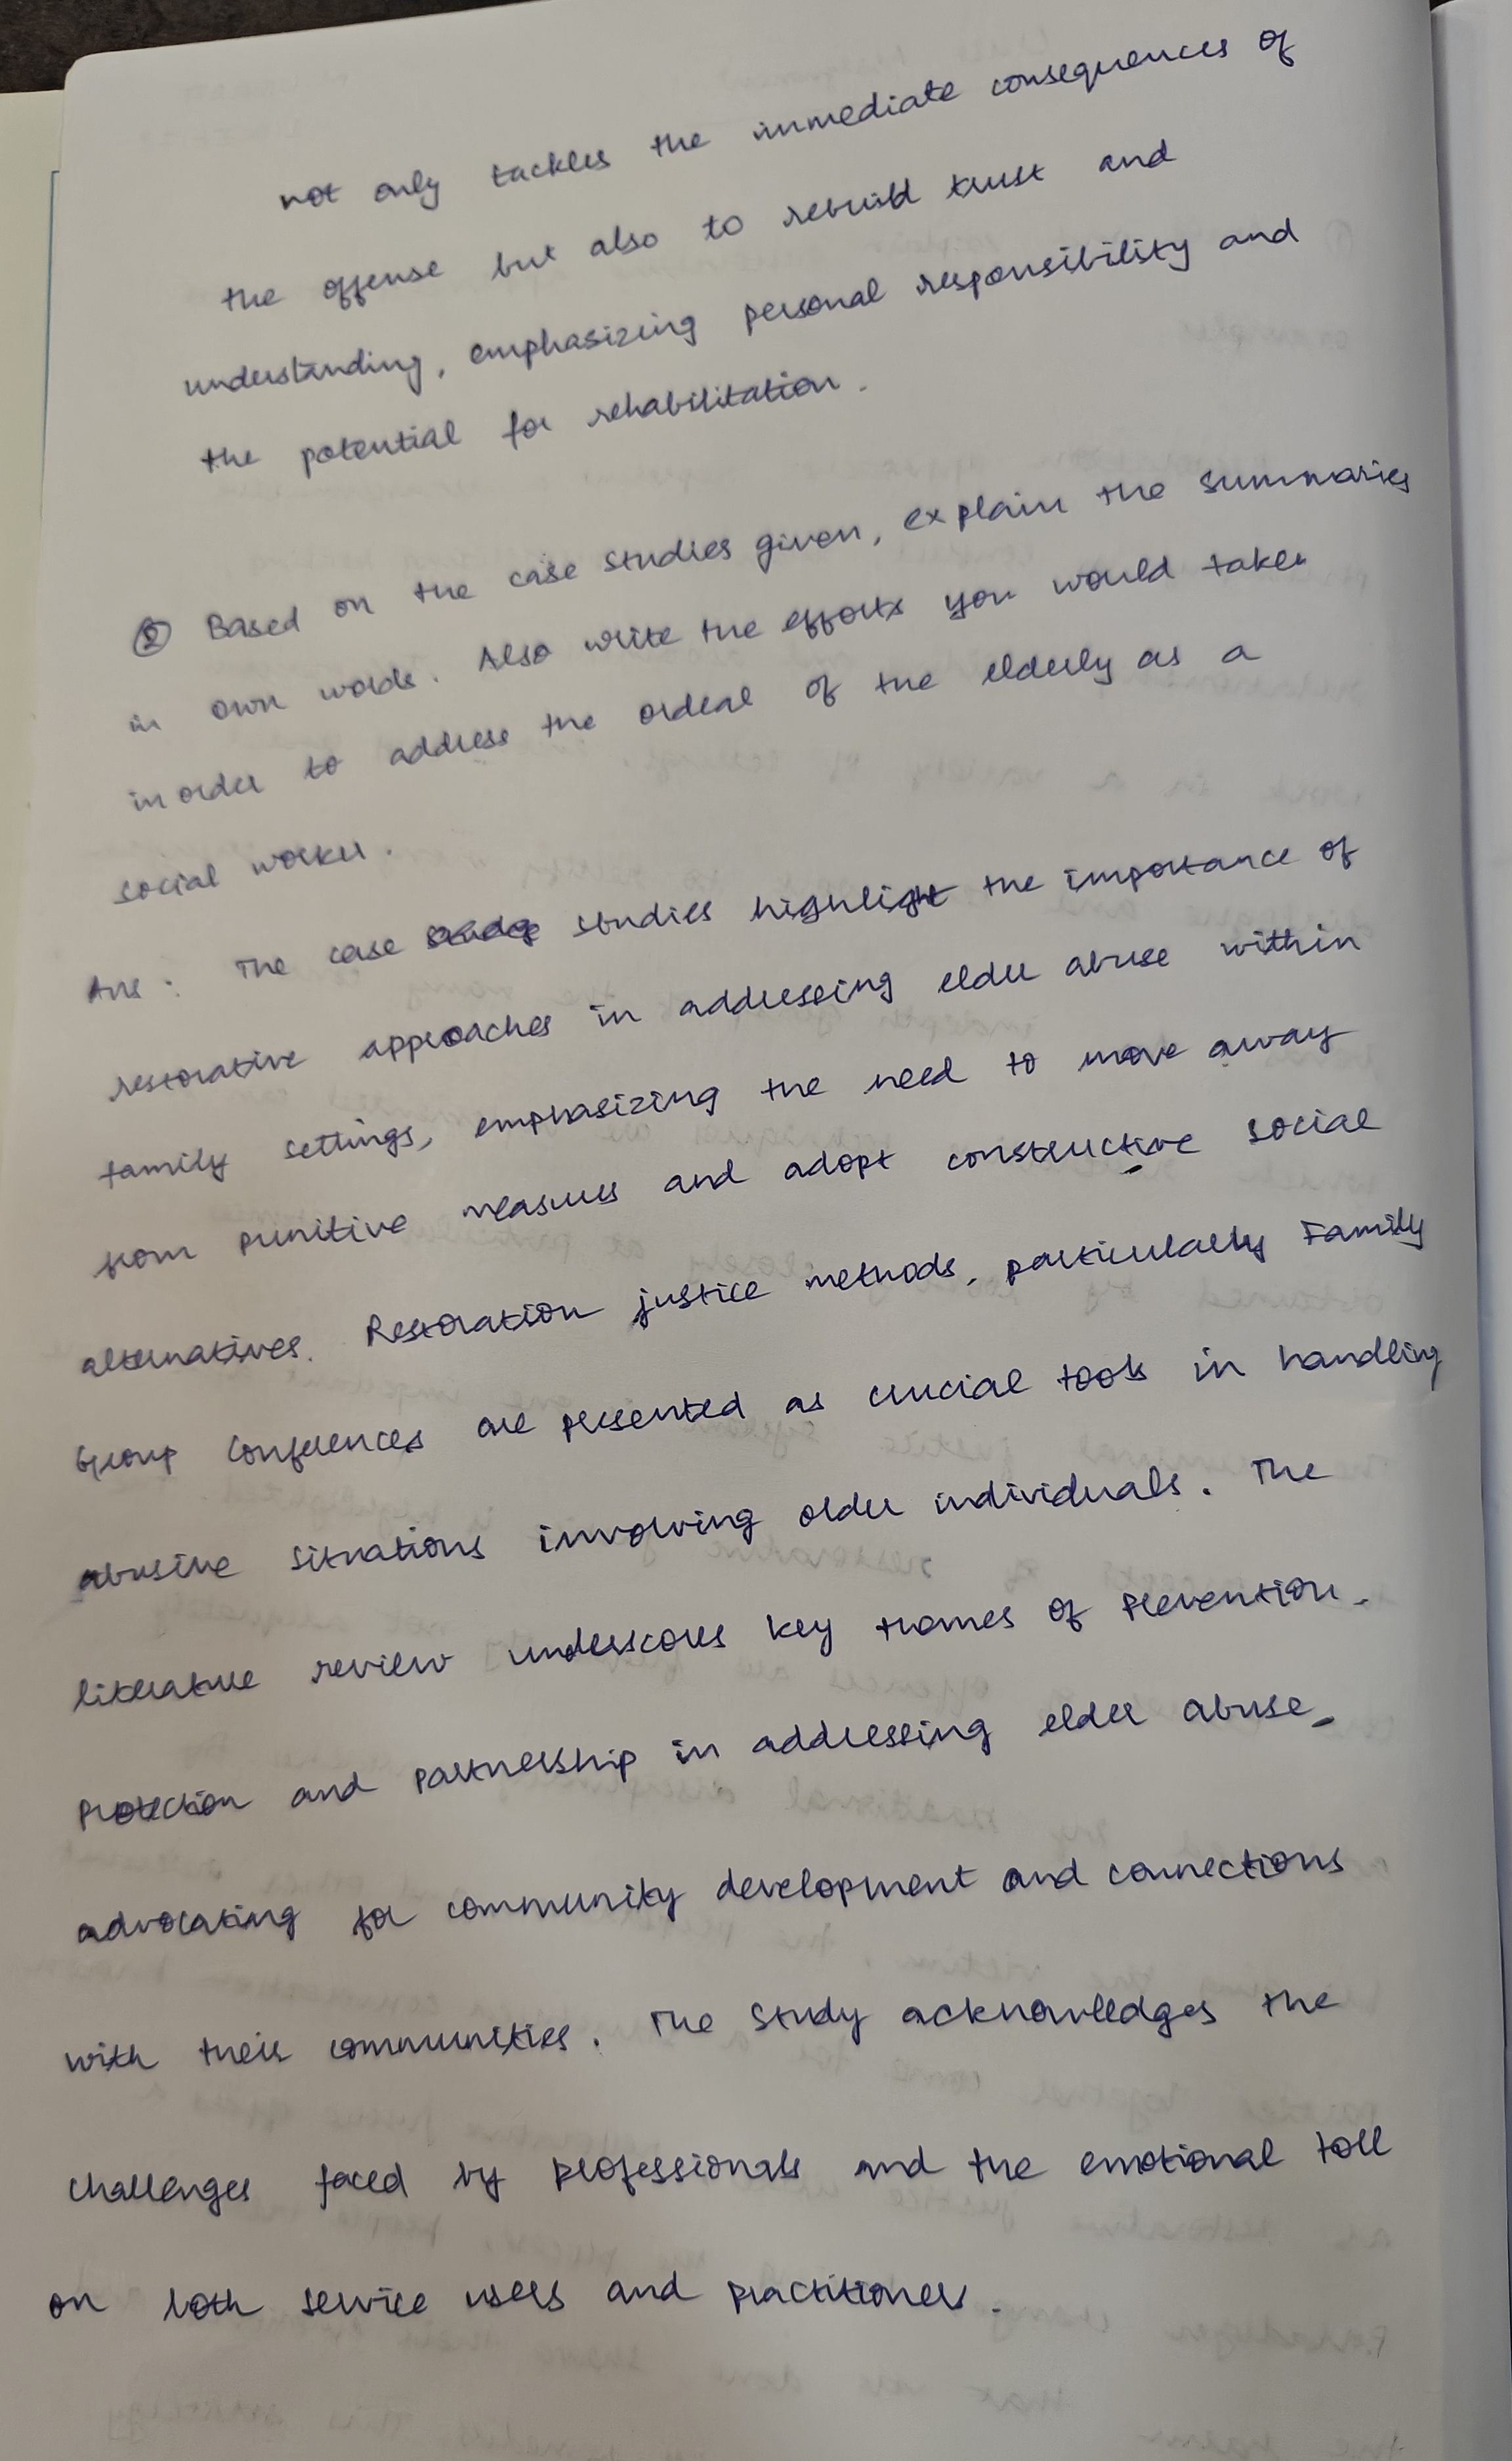 not only tackles the immediate consequences of
the offense but also to rebuild trust and
understanding, emphasizing personal responsibility and
the potential for rehabilitation.
② Based on the case studies given, explain the summaries
in own words. Also write the efforts you would take
in order to address the ordeal of the elderly as a
social worker.
Ans: The case studies highlight the importance of
restorative approaches in addressing elder abuse within
family settings, emphasizing the need to move away
from punitive measures and adopt constructive social
alternatives. Restoration justice methods, particularly Family
Group Conferences are presented as crucial tools in handling
abusive situations involving older individuals. The
literature review underscores key themes of Prevention.
Protection and Partnership in addressing elder abuse,
advocating for community development and connections
with their communities. The Study acknowledges the
challenges faced by professionals and the emotional toll
on both service users and practitioners.